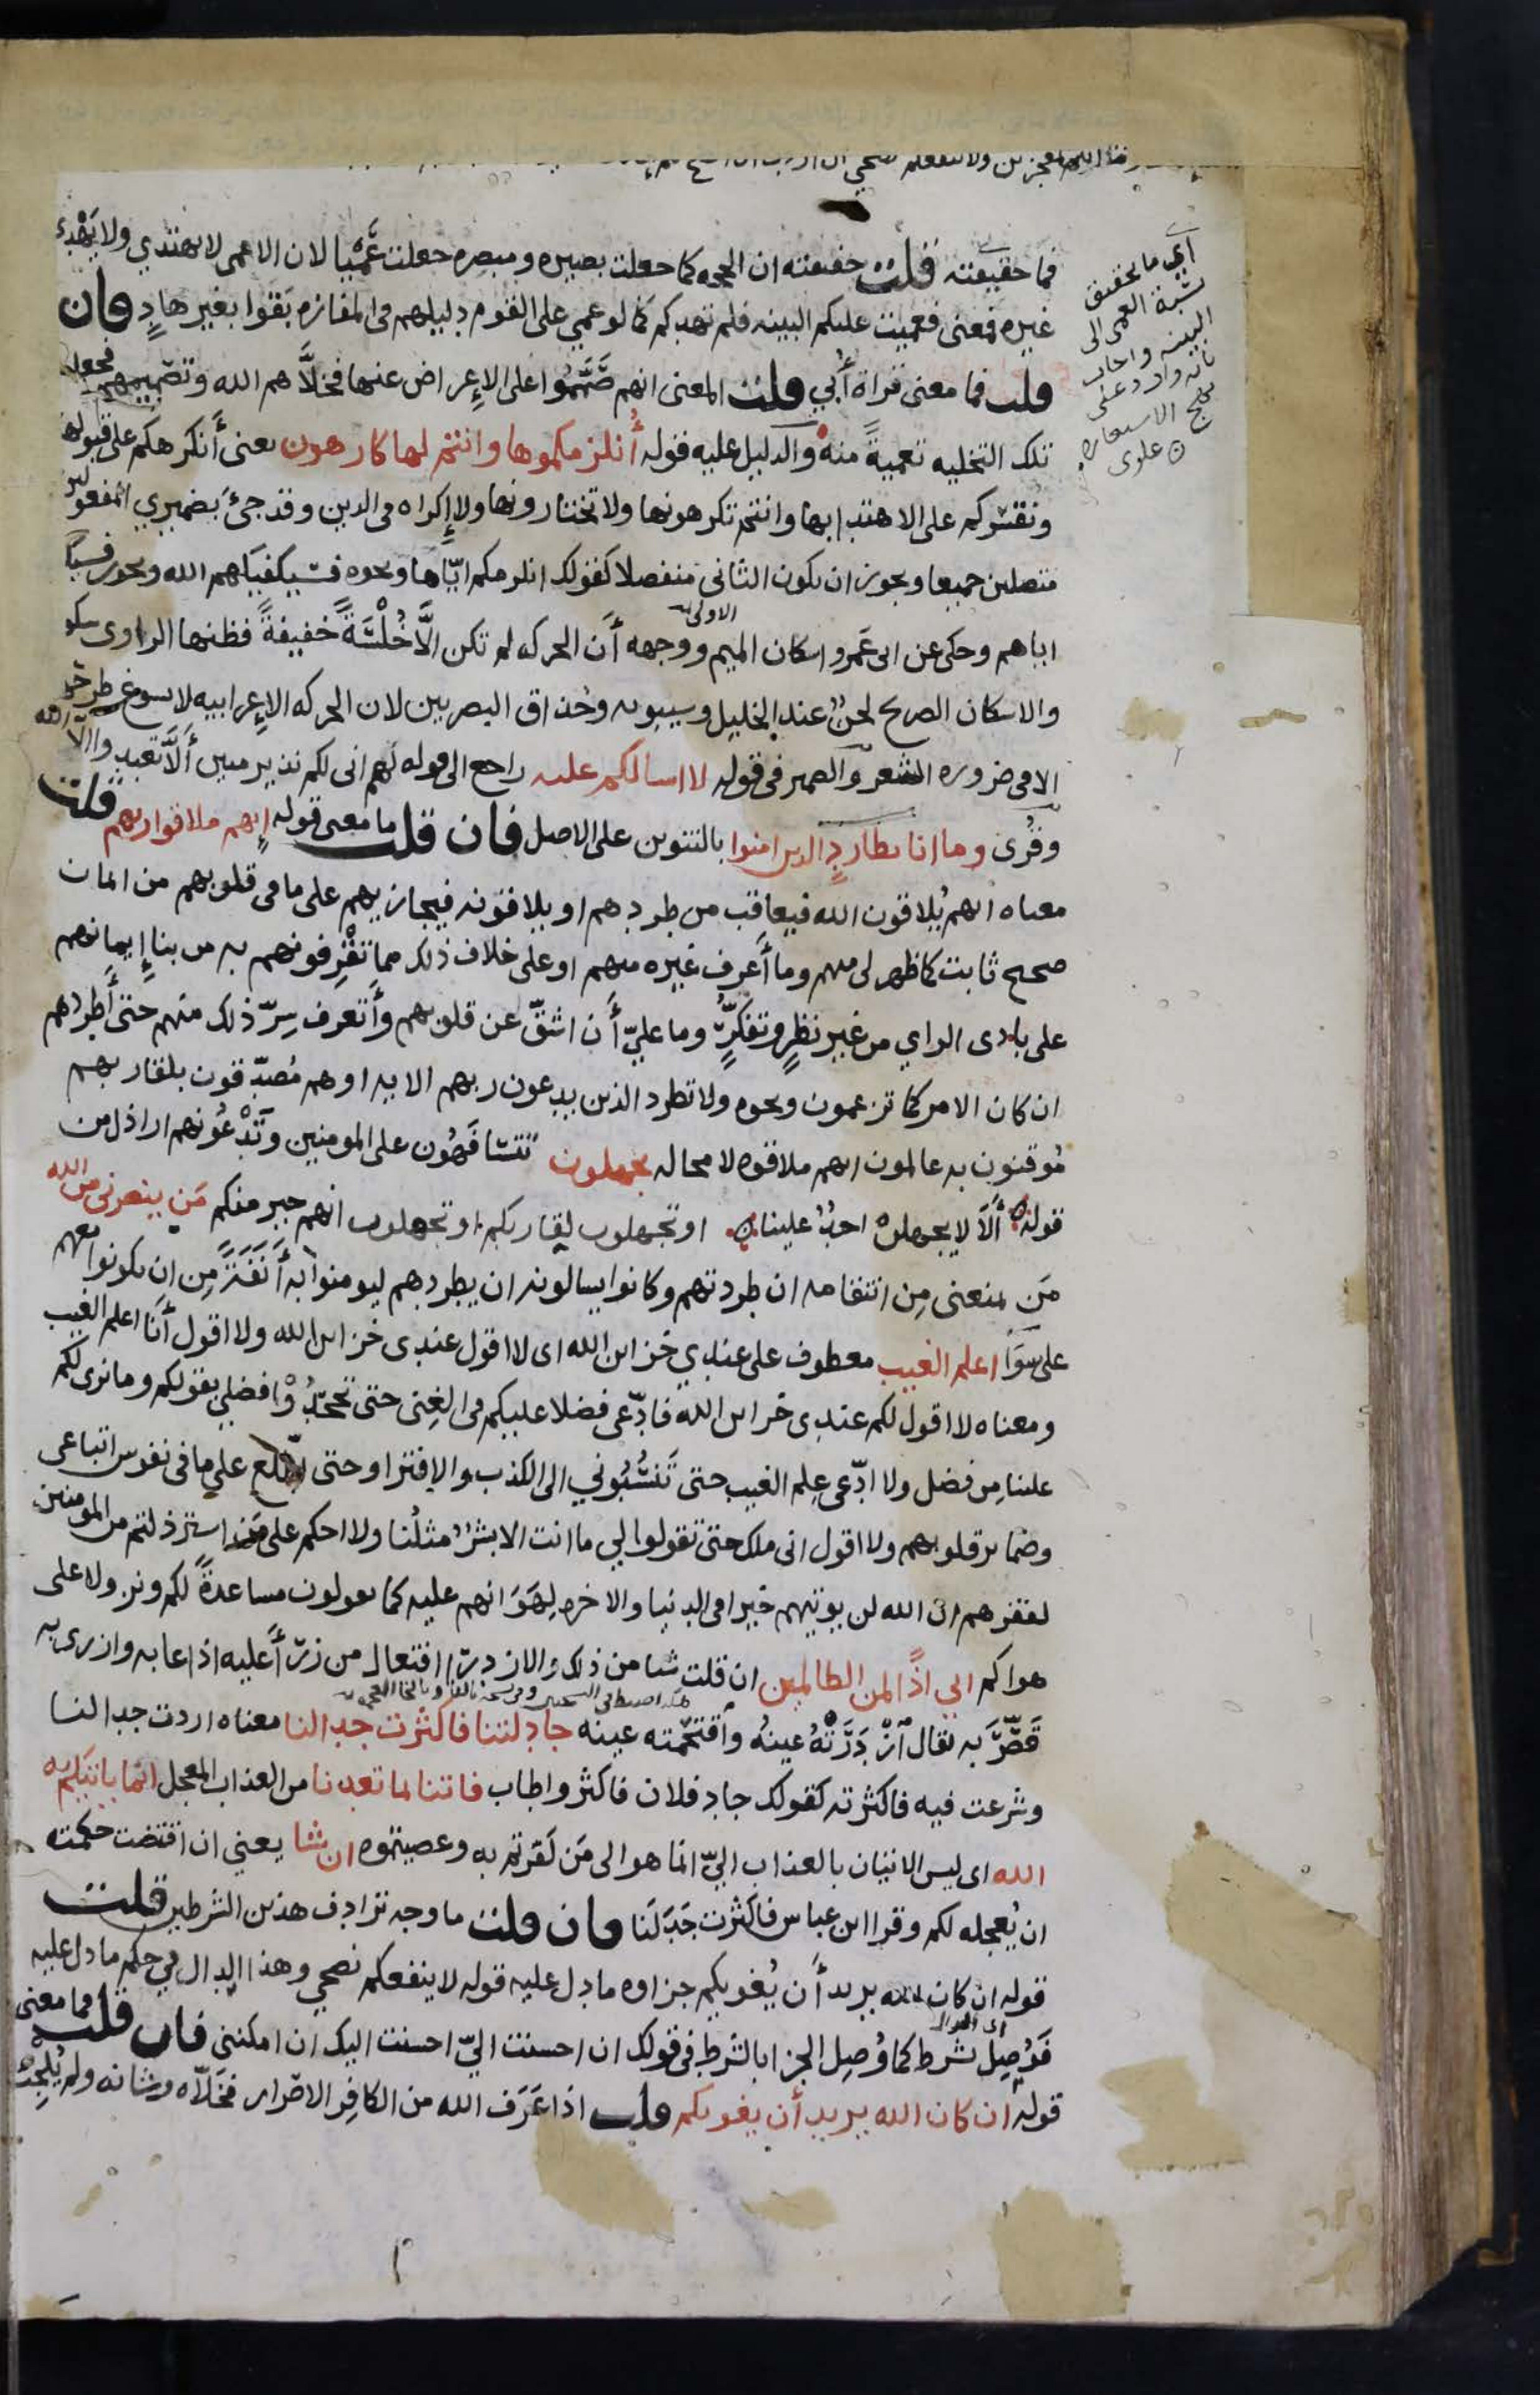 فما حقيقته قلت حقيقته ان الحجه كما جعلت بصيره ومبصره جعلت عَمْيا لان الاعمى لا يهتدي ولا يَهْدي
غيره فمعنى فعميت عليكم البينه فلم تهدكم كما لو عمي على القوم دليلهم في المفازه بَقَوا بغير هادٍ فان
قلت فما معنى قراة أُبي قلت المعنى انهم صَمَّموا على الإعراض عنها فخلّاهم الله وتصميمهم فجعل
تلك التخليه تعميةً منه والدليل عليه قوله أنلزمكموها وانتم لها كارهون يعنى أنكرهكم على قبولها
ونقسركم على الاهتدا بها وانتم تكرهونها ولا تختارونها ولا إكراه في الدين وقد جئ بضميري المفعولين
متصلين جميعا ويجوز ان يكون الثاني منفصلا كقولك انلزمكم اياها ونحوه فسيكفيكهم الله ويجوز فسيكفيك
اياهم وحكى عن ابى عَمرو اسكان الميم الاولى ووجهه أن الحركه لم تكن الّا خُلْسَةً خفيفةً فظنها الراوى سكونا
والاسكان الصريح لحنٌ عند الخليل وسيبويه وحُذاق البصريين لان الحركه الإعرابيه لا يسوغ طرحها
الا في ضروره الشعر والضمير في قوله لا اسالكم عليه راجع الى قوله لهم انى لكم نذير مبين ألّا تعبدوا الا الله
وقُرى وما انا بطاردٍ الذين امنوا بالتنوين على الاصل فان قلت ما معنى قوله إنهم ملاقوا ربهم قلت
معناه انهم يُلاقون الله فيعاقب من طردهم او يلاقونه فيجازيهم على ما في قلوبهم من ايمان
صحيح ثابت كما ظهر لى منهم وما أعرف غيره منهم او على خلاف ذلك مما تَقْرِفونهم به من بنا إيمانهم
على بادى الراي من غير نظرٍ وتفكرٍ وما عليّ أن اشقّ عن قلوبهم وأتعرف سِرّ ذلك منهم حتى أطردهم
ان كان الامر كما تزعمون ونحوه ولا تطرد الذين يدعون ربهم الايه او هم مُصدّقون بلقا ربهم
مُوقنون به عالمون انهم ملاقوه لا محاله تجهلون تتسافَهُون على المومنين وتَدْعُونهم اراذل من
قوله ألا لا يجهلن احدٌ علينا او تجهلون لقا ربكم او تجهلون انهم خير منكم مَن ينصرنى من الله
مَن يمنعنى مِن انتقامه ان طردتهم وكانوا يسالونه ان يطردهم ليومنوا به أَنَفَةً مِن ان يكونوا معهم
على سَوَا اعلم الغيب معطوف على عندي خزاين الله اى لا اقول عندى خزاين الله ولا اقول أنا اعلم الغيب
ومعناه لا اقول لكم عندى خزاين الله فادّعى فضلا عليكم في الغِنى حتى تجحدُوْا فضلى بقولكم وما نرى لكم
علينا مِن فضل ولا ادّعى عِلم الغيب حتى تَنسُبُوني الى الكذب والإفترا او حتى اطّلع على ما في نفوس اتباعى
وضماير قلوبهم ولا اقول انى ملك حتى تقولوا لي ما انت الا بشرٌ مثلُنا ولا احكم على من استرذلتم من المومنين
لفقرهم ان الله لن يوتيهم خيرا في الدنيا والاخره لِهَوَانهم عليه كما تقولون مساعدةً لكم ونزولا على
هواكم اني اذًا لمن الظالمين ان قلت شيا من ذلك والازدرا افتعال من زرَى عليه اذا عابه وازرى به
قَصَّرَ به يقال ازْدَرَتْهُ عينُه واقتحمته عينه جادلتنا فاكثرت جدالنا معناه اردت جدالنا
وشرعت فيه فاكثرته كقولك جاد فلان فاكثر واطاب فاتنا بما تعدنا من العذاب المعجل انما ياتيكم به
الله اى ليس الاتيان بالعذاب اليّ انما هو الى مَن كفرتم به وعصيتموه ان شا يعني ان اقتضت حكمته
ان يُعجله لكم وقرا ابن عباس فاكثرت جَدَلَنا فان قلت ما وجه ترادف هذين الشرطين قلت
قوله ان كان الله يريد أن يُغويكم جزاوه ما دل عليه قوله لا ينفعكم نصحي وهذا الدال في حكم ما دل عليه
فوُصِل بشرط كما وُصِل الجزا بالشرط في قولك ان احسنت اليّ احسنت اليك ان امكننى فان قلت فما معنى
قوله ان كان الله يريد أن يغويكم قلت اذا عَرَف الله من الكافِر الاصرار فخَلّاه وشانه ولم يُلجِئه
اي ما تحقيق
نسبة العمى الى
البينه واجاب
بانه وارد على
نهج الاستعاره
علوى